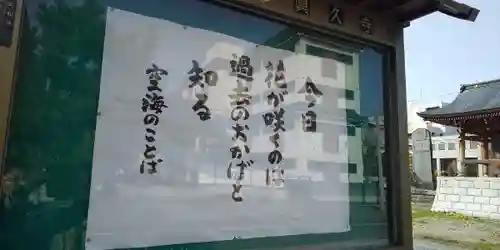 今日
花が咲くのは
過去のおかげと
知る
空海のことば
久寺